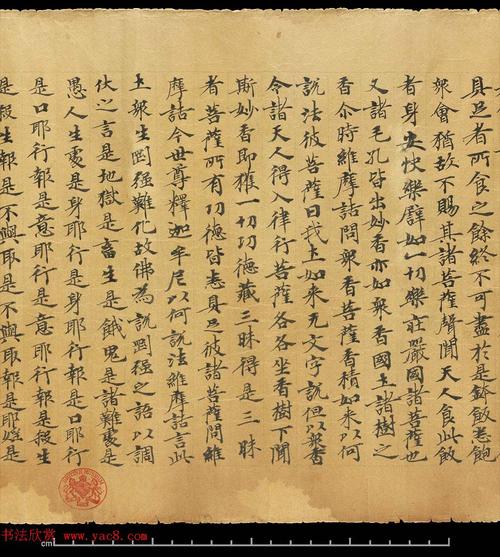 具足者所食之餘終不可盡於是鉢飯悉飽
衆會猶故不賜其諸菩薩聲聞天人食此飯
者身安快樂辟如一切樂莊嚴國諸菩薩也
又諸毛孔皆出妙香亦如衆香國土諸樹之
香尒時維摩詰問衆香菩薩香積如来以何
說法彼菩薩曰我土如来无文字說但以衆香
令諸天人得入律行菩薩各各坐香樹下聞
斯妙香即獲一切功德藏三昧得是三昧
者菩薩所有功德皆悉具足彼諸菩薩問維
摩詰今世尊釋迦牟尼以何說法維摩詰言此
土衆生罡强難化故佛為說罡强之語以調
伏之言是地獄是畜生是餓鬼是諸難處是
愚人生處是身耶行是身耶行報是口耶行
是口耶行報是意耶行是意耶行報是煞生
是煞生報是不與取是不與取報是耶婬是
书法欣赏
www.yac8.com
cm